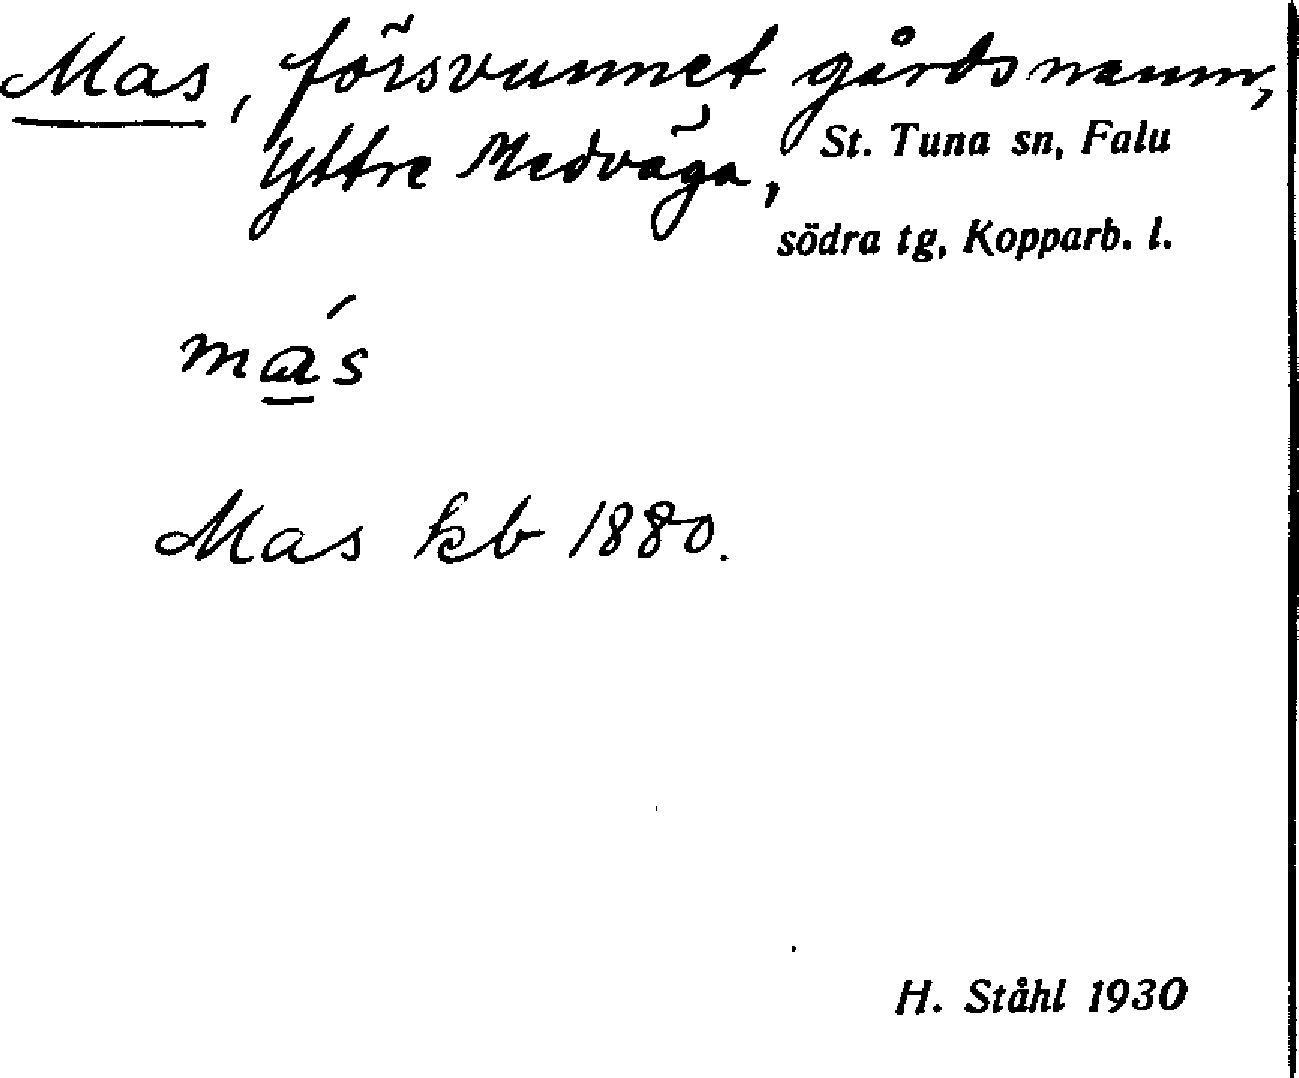 Mas, försvunnet gårdsnamn,
Yttre Medväga, St. Tuna sn, Falu
södra tg, Kopparb. l.
má̱s
Mas kb 1880.
H. Ståhl 1930